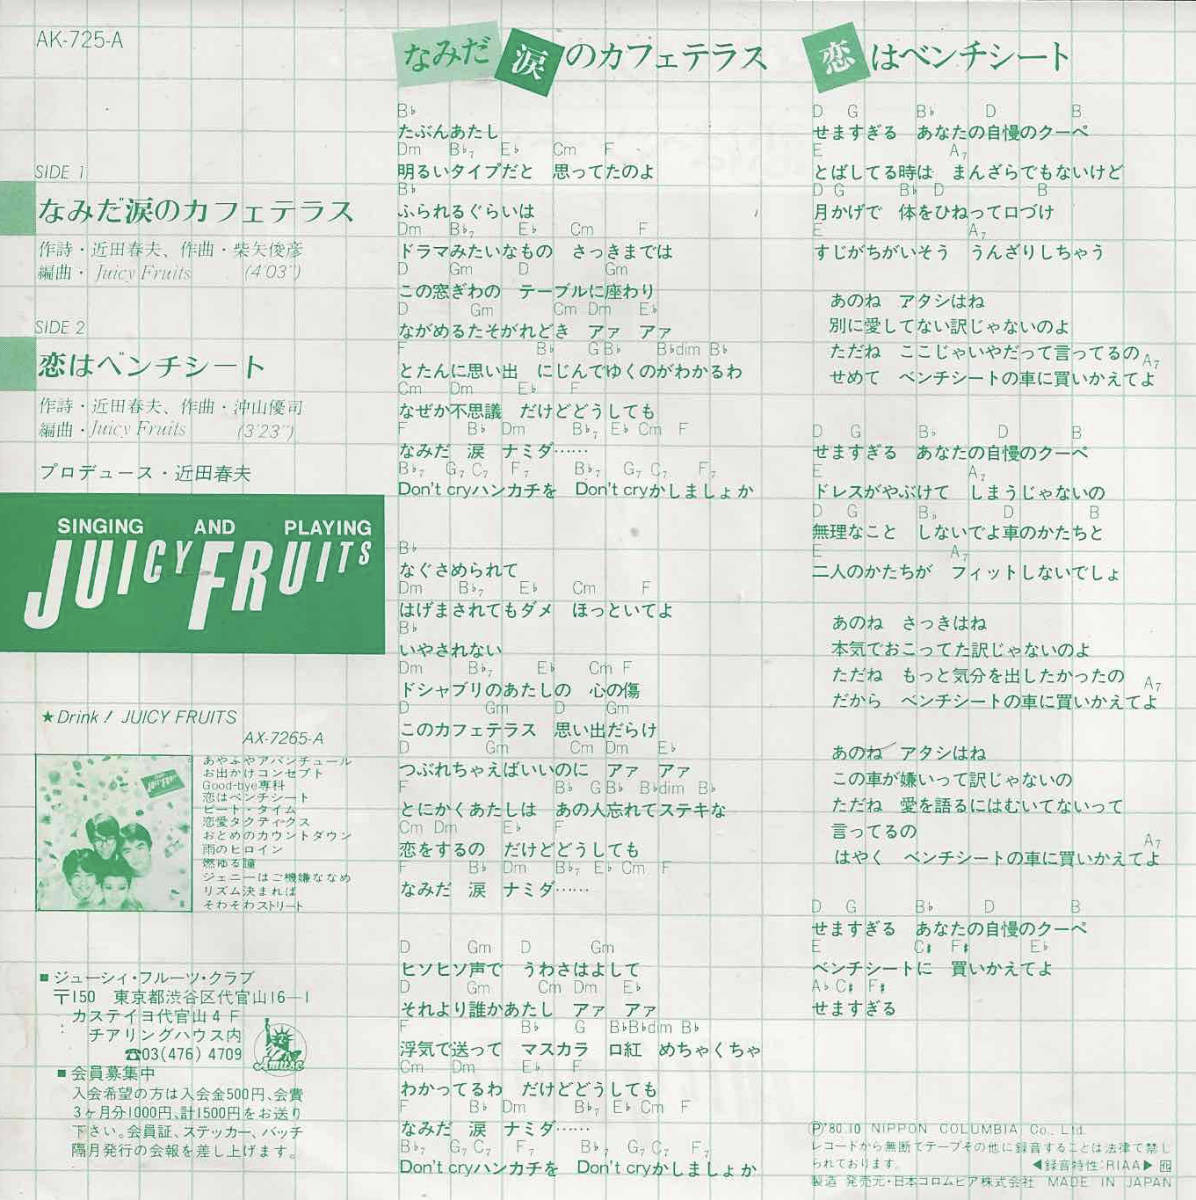 AK-725-A
SIDE 1
なみだ涙のカフェテラス
作詩・近田春夫、作曲・柴矢俊彦
編曲・Juicy Fruits (4'03")
SIDE 2
恋はベンチシート
作詩・近田春夫、作曲・沖山優司
編曲・Juicy Fruits (3'23")
プロデュース・近田春夫
SINGING AND PLAYING
JUICY FRUITS
★Drink! JUICY FRUITS
AX-7265-A
あやふやアバンチュール
お出かけコンセプト
Good-bye専科
恋はベンチシート
ビート・タイム
恋愛タクティクス
おとめのカウントダウン
雨のヒロイン
燃ゆる瞳
ジェニーはご機嫌ななめ
リズム決まれば
そわそわストリート
■ジューシィ・フルーツ・クラブ
〒150 東京都渋谷区代官山16-1
カステイヨ代官山4F
チアリングハウス内
☎03(476)4709
Amuse
■会員募集中
入会希望の方は入会金500円、会費
3ヶ月分1000円、計1500円をお送り
下さい。会員証、ステッカー、バッチ
隔月発行の会報を差し上げます。
なみだ 涙のカフェテラス
B♭
たぶんあたし
Dm B♭7 E♭ Cm F
明るいタイプだと 思ってたのよ
B♭
ふられるぐらいは
Dm B♭7 E♭ Cm F
ドラマみたいなもの さっきまでは
D Gm D Gm
この窓ぎわの テーブルに座わり
D Gm Cm Dm E♭
ながめるたそがれどき アァ アァ
F B♭ G B♭ B♭dim B♭
とたんに思い出 にじんでゆくのがわかるわ
Cm Dm E♭ F
なぜか不思議 だけどどうしても
F B♭ Dm B♭7 E♭ Cm F
なみだ 涙 ナミダ……
B♭7 G7 C7 F7 B♭7 G7 C7 F7
Don't cryハンカチを Don't cryかしましょか
B♭
なぐさめられて
Dm B♭7 E♭ Cm F
はげまされてもダメ ほっといてよ
B♭
いやされない
Dm B♭7 E♭ Cm F
ドシャブリのあたしの 心の傷
D Gm D Gm
このカフェテラス 思い出だらけ
D Gm Cm Dm E♭
つぶれちゃえばいいのに アァ アァ
F B♭ G B♭ B♭dim B♭
とにかくあたしは あの人忘れてステキな
Cm Dm E♭ F
恋をするの だけどどうしても
F B♭ Dm B♭7 E♭ Cm F
なみだ 涙 ナミダ……
D Gm D Gm
ヒソヒソ声で うわさはよして
D Gm Cm Dm E♭
それより誰かあたし アァ アァ
F B♭ G B♭B♭dim B♭
浮気で送って マスカラ 口紅 めちゃくちゃ
Cm Dm E♭ F
わかってるわ だけどどうしても
F B♭ Dm B♭7 E♭ Cm F
なみだ 涙 ナミダ……
B♭7 G7 C7 F7 B♭7 G7 C7 F7
Don't cryハンカチを Don't cryかしましょか
恋はベンチシート
D G B♭ D B
せますぎる あなたの自慢のクーペ
E A7
とばしてる時は まんざらでもないけど
D G B♭ D B
月かげで 体をひねって口づけ
E A7
すじがちがいそう うんざりしちゃう
あのね アタシはね
別に愛してない訳じゃないのよ
ただね ここじゃいやだって言ってるの A7
せめて ベンチシートの車に買いかえてよ
D G B♭ D B
せますぎる あなたの自慢のクーペ
E A7
ドレスがやぶけて しまうじゃないの
D G B♭ D B
無理なこと しないでよ車のかたちと
E A7
二人のかたちが フィットしないでしょ
あのね さっきはね
本気でおこってた訳じゃないのよ
ただね もっと気分を出したかったの A7
だから ベンチシートの車に買いかえてよ
あのね アタシはね
この車が嫌いって訳じゃないの
ただね 愛を語るにはむいてないって
言ってるの A7
はやく ベンチシートの車に買いかえてよ
D G B♭ D B
せますぎる あなたの自慢のクーペ
E C♯ F♯ E♭
ベンチシートに 買いかえてよ
A♭ C♯ F♯
せますぎる
Ⓟ'80.10 NIPPON COLUMBIA Co., Ltd.
レコードから無断でテープその他に録音することは法律で禁じ
られております。 ◀録音特性:RIAA▶
製造 発売元・日本コロムビア株式会社 MADE IN JAPAN